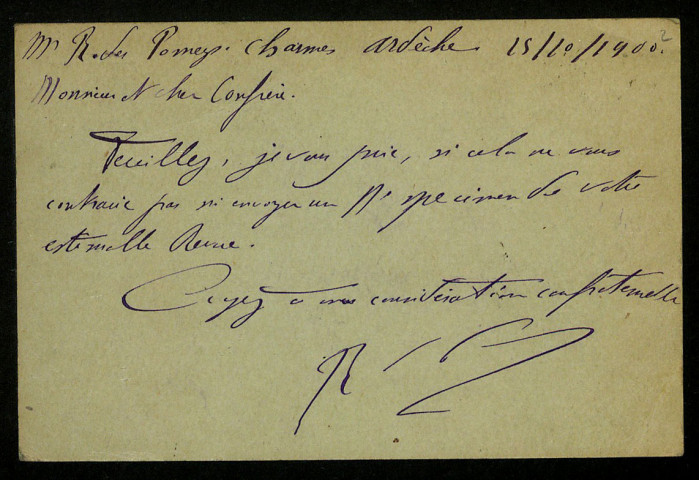 Mr R. des Pomeys. Charmes Ardèche 15/10/1900. 2
Monsieur et cher Confrère.
Veuillez, je vous prie, si cela ne vous
contrarie pas m'envoyer un No specimen de votre
estimable Revue.
Croyez à ma considération confraternelle
R